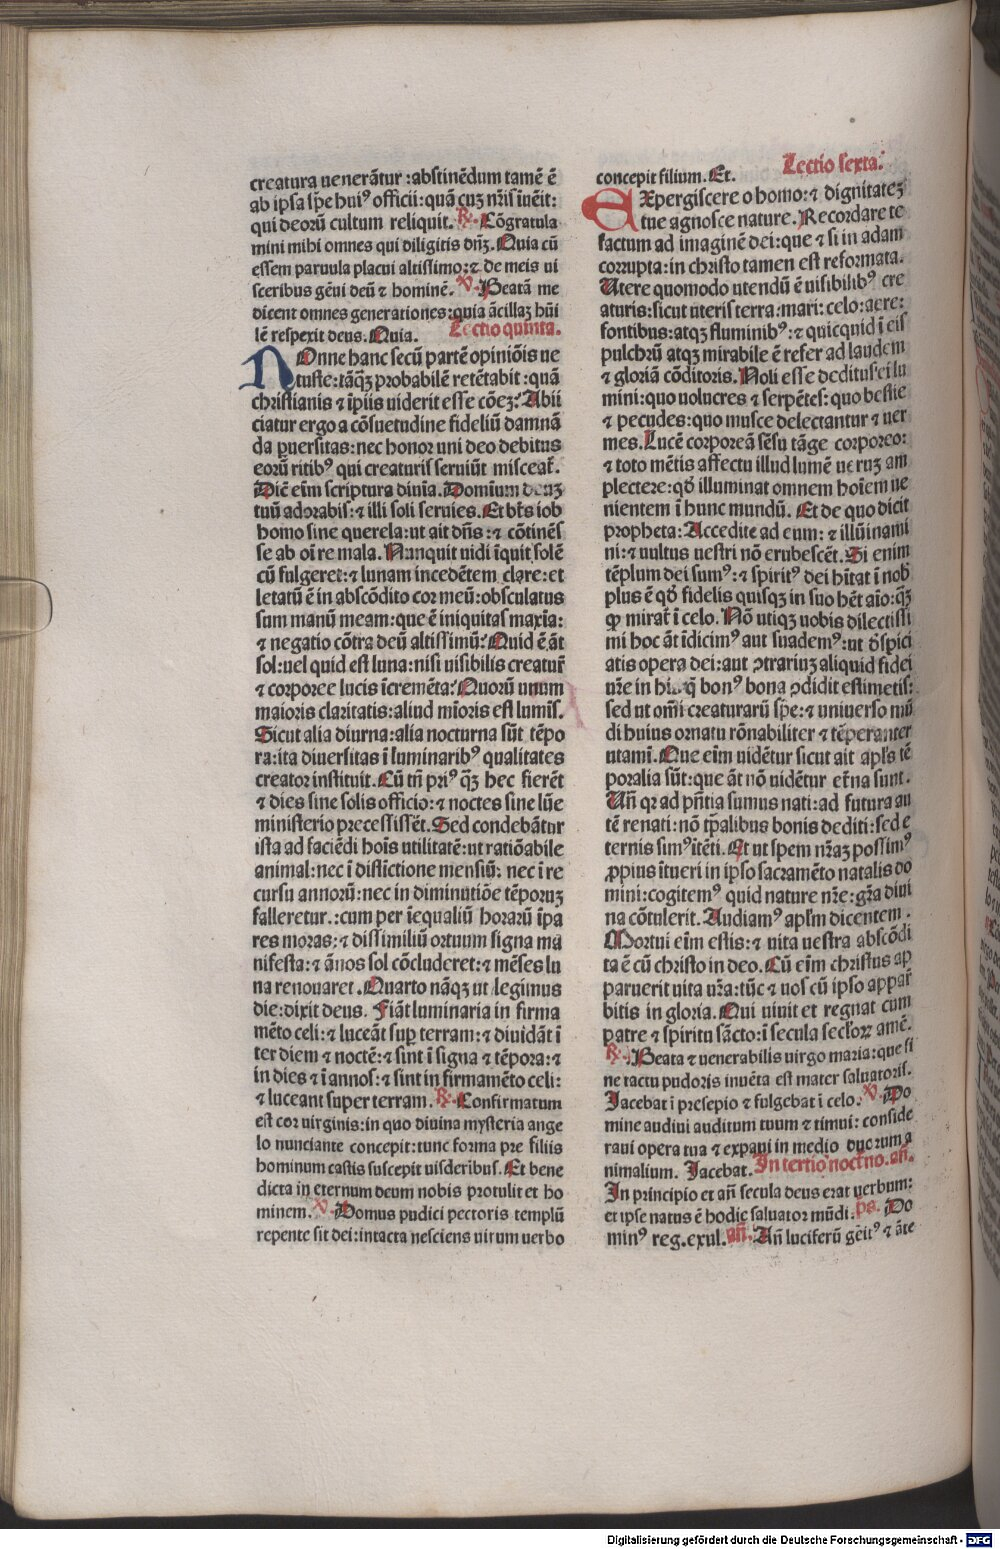 creatura uenerãtur :abstinẽdum tamẽ ẽ
ab ipsa spẽ huiꝰ officii: quã cuꝫ nr̃is iuẽit:
qui deorũ cultum reliquit. ℟. Cõgratula
mini mihi omnes qui diligitis dñꝫ. Quia cũ
essem paruula placui altissimo: ⁊ de meis ui
sceribus gẽui deũ ⁊ hominẽ. ℣. Beatã me
dicent omnes generationes: quia ãcillaꝫ hũi
lẽ respexit deus. Quia. Lectio quinta.
NOnne hanc secũ partẽ opiniõis ue
tuste: tãqꝫ probabilẽ retẽtabit : quã
christianis ⁊ ĩpiis uiderit esse cõeꝫ? Abii
ciatur ergo a cõsuetudine fideliũ damnã
da ꝑuersitas: nec honor uni deo debitus
eorũ ritibꝰ qui creaturis seruiũt misceat̃.
Dicẽ eĩm scriptura diuĩa. Domĩum deuꝫ
tuũ adorabis: ⁊ illi soli seruies. Et bt̃s iob
homo sine querela: ut ait dñs : ⁊ cõtinẽs
se ab oĩ re mala. Nunquit uidi ĩquit solẽ
cũ fulgeret: ⁊ lunam incedẽtem clare: et
letatũ ẽ in abscõdito cor meũ: obsculatus
sum manũ meam: que ẽ iniquitas maxĩa:
⁊ negatio cõtra deũ altissimũ? Quid ẽ ãt
sol: uel quid est luna: nisi uisibilis creatur̃
⁊ corporee lucis ĩcremẽta? Quorũ unum
maioris claritatis: aliud mĩoris est lumĩs.
Sicut alia diurna: alia nocturna sũt tẽpo
ra: ita diuersitas ĩ luminaribꝰ qualitates
creator instituit. Cũ tñ priꝰ qꝫ hec fierẽt
⁊ dies sine solis officio: ⁊ noctes sine lũe
ministerio precessissẽt. Sed condebãtur
ista ad faciẽdi hoĩs utilitatẽ: ut ratiõabile
animal: nec ĩ distĩctione mensiũ: nec ĩ re
cursu annorũ: nec in diminutiõe tẽporuꝫ
falleretur. : cum per ĩequaliũ horarũ ĩpa
res moras: ⁊ dissimiliũ ortuum signa ma
nifesta: ⁊ ãnos sol cõcluderet: ⁊ mẽses lu
na renouaret . Quarto nãqꝫ ut legimus
die: dixit deus. Fiãt luminaria in firma
mẽto celi: ⁊ luceãt suꝑ terram: ⁊ diuidãt ĩ
ter diem ⁊ noctẽ: ⁊ sint ĩ signa ⁊ tẽpora: ⁊
in dies ⁊ ĩ annos: ⁊ sint in firmamẽto celi:
⁊ luceant super terram. ℟. Confirmatum
est cor uirginis: in quo diuina mysteria ange
lo nunciante concepit: tunc forma pre filiis
hominum castis suscepit uisderibus. Et bene
dicta in eternum deum nobis protulit et ho
minem. ℣. Domus pudici pectoris templũ
repente sit dei: intacta nesciens uirum uerbo
concepit filium. Et. Lectio sexta.
EXpergiscere o homo: ⁊ dignitateꝫ
tue agnosce nature. Recordare te
factum ad imaginẽ dei: que ⁊ si in adam
corrupta: in christo tamen est reformata.
Utere quomodo utendũ ẽ uisibilibꝰ cre
aturis: sicut uteris terra: mari: celo: aere:
fontibus: atqꝫ fluminibꝰ: ⁊ quicquid ĩ eis
pulchrũ atqꝫ mirabile ẽ refer ad laudem
⁊ gloriã cõditoris. Noli esse deditus ei lu
mini: quo uolucres ⁊ serpẽtes: quo bestie
⁊ pecudes: quo musce delectantur ⁊ uer
mes. Lucẽ corporeã sẽsu tãge corporeo:
⁊ toto mẽtis affectu illud lumẽ ueruꝫ am
plectere: qđ illuminat omnem hoĩem ue
nientem ĩ hunc mundũ. Et de quo dicit
propheta: Accedite ad eum: ⁊ illũinami
ni: ⁊ uultus uestri nõ erubescẽt. Si enim
tẽplum dei sumꝰ: ⁊ spiritꝰ dei hĩtat ĩ nob̃
plus ẽ qđ fidelis quisqꝫ in suo hẽt aĩo: qꝫ
ꝙ mirat̃ ĩ celo. Nõ utiqꝫ uobis dilectissi
mi hoc ãt ĩdicimꝰ aut suademꝰ: ut đspici
atis opera dei: aut ꝯtrariuꝫ aliquid fidei
ur̃e in his q̃ bonꝰ bona ꝯdidit estimetis:
sed ut om̃i creaturarũ spẽ: ⁊ uniuerso mũ
di huius ornatu rõnabiliter ⁊ tẽperanter
utamĩ. Que eĩm uidẽtur sicut ait apl̃s tẽ
poralia sũt: que ãt nõ uidẽtur et̃na sunt.
Uñ qꝛ ad p̃ntia sumus nati: ad futura au
tẽ renati: nõ tp̃alibus bonis dediti: sed e
ternis simꝰ ĩtẽti. Et ut spem nr̃aꝫ possimꝰ
ꝓpius ĩtueri in ipso sacramẽto natalis do
mini: cogitemꝰ quid nature nr̃e: gr̃a diui
na cõtulerit. Audiamꝰ apl̃m dicentem .
Mortui eĩm estis: ⁊ uita uestra abscõdi
ta ẽ cũ christo in deo. Cũ eĩm christus ap
paruerit uita ur̃a: tũc ⁊ uos cũ ipso appar̃
bitis in gloria. Qui uiuit et regnat cum
patre ⁊ spiritu sãcto: ĩ secula seclõꝝ amẽ.
℟. Beata ⁊ uenerabilis uirgo maria: que si
ne tactu pudoris inuẽta est mater saluatoris.
Jacebat ĩ presepio ⁊ fulgebat ĩ celo. ℣. Do
mine audiui auditum tuum ⁊ timui: conside
raui opera tua ⁊ expaui in medio duorum a
nimalium. Jacebat. In tertio noct̃no. añ.
In principio et añ secula deus erat uerbum:
et ipse natus ẽ hodie saluator mũdi. ps. Do
minꝰ reg. exul. añ. Añ luciferũ gẽitꝰ ⁊ ãte
Digitalisierung gefördert durch die Deutsche Forschungsgemeinschaft - DFG